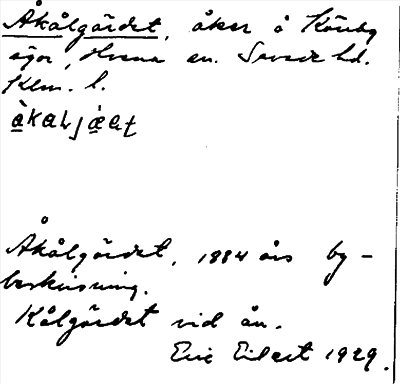 Åkålgärdet, åker å Köneby
ägor, Hvena sn. Sevede hd.
Klm. l.
Åkålgärdet, 1884 års by-
beskrivning.
Kålgärdet vid ån.
Eric Eilert 1929.